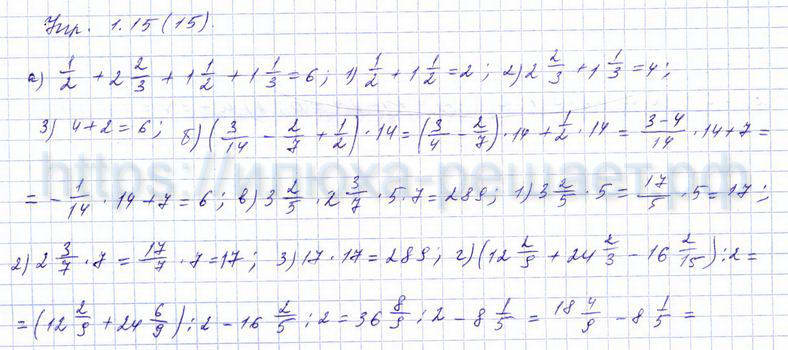 Упр. 1.15(15).
а) 1/2 + 2 2/3 + 1 1/2 + 1 1/3 = 6; 1) 1/2 + 1 1/2 = 2; 2) 2 2/3 + 1 1/3 = 4;
3) 4+2=6; б) (3/14 - 2/7 + 1/2) · 14 = (3/4 - 2/7) · 14 + 1/2 · 14 = 3-4/14 · 14 + 7 =
= - 1/14 · 14 + 7 = 6; в) 3 2/5 · 2 3/7 · 5 · 7 = 289; 1) 3 2/5 · 5 = 17/5 · 5 = 17;
2) 2 3/7 · 7 = 17/7 · 7 = 17; 3) 17 · 17 = 289; г) (12 2/9 + 24 2/3 - 16 2/15) : 2 =
= (12 2/9 + 24 6/9) : 2 - 16 2/5 : 2 = 36 8/9 : 2 - 8 1/5 = 18 4/9 - 8 1/5 =
https://илюха-решает.рф